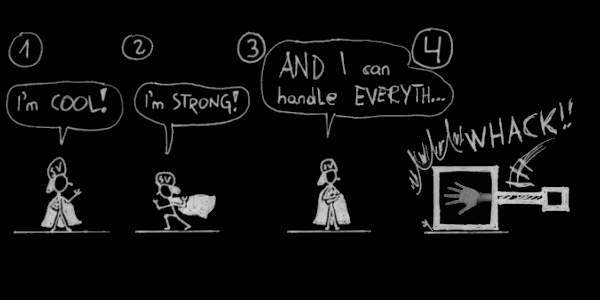 1
I'm COOL!
2
I'm STRONG!
3
AND I can
handle EVERYTH...
4
WHACK!!
SV
SV
SV